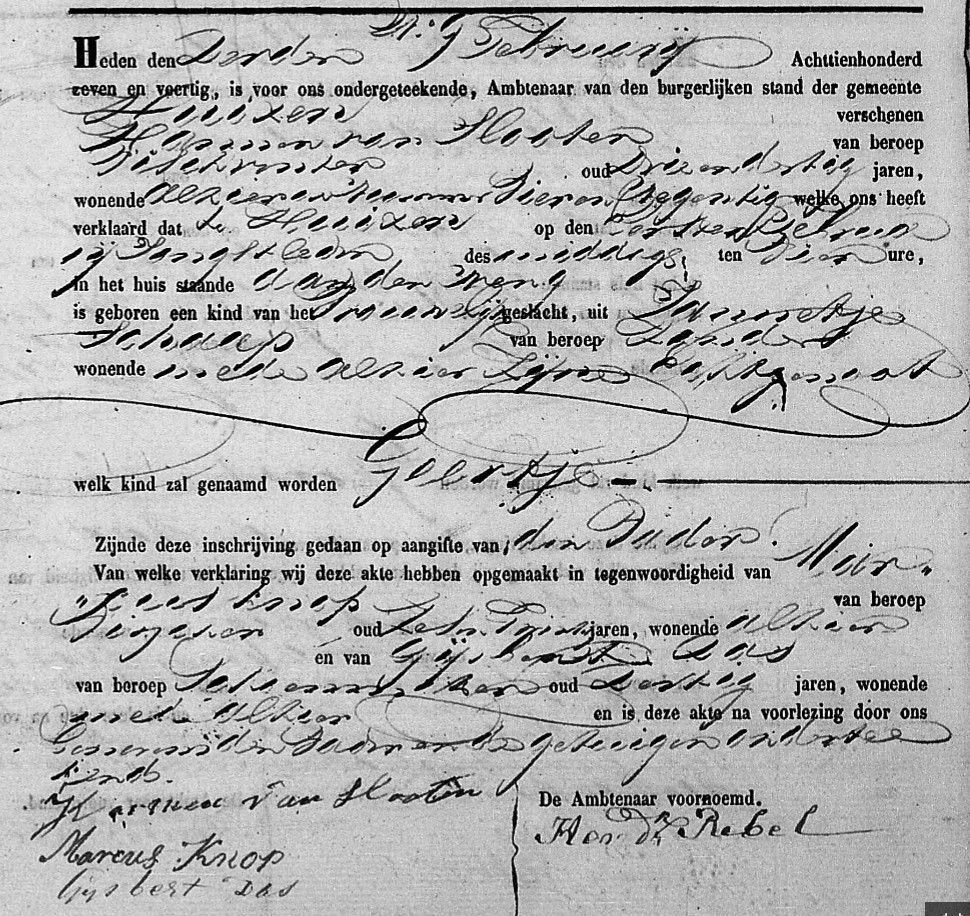 Heden den Derden Februarij Achttienhonderd
zeven en veertig, is voor ons ondergeteekende, Ambtenaar van den burgerlijken stand der gemeente
Huizen verschenen
Harmen van Slooten van beroep
oud Drie en dertig jaren,
wonende alhier welke ons heeft
verklaard dat te Huizen op den Eersten Februa
rij Jongstleden des middags, ten Vier ure,
in het huis staande aan den weng
is geboren een kind van het Vrouwelijk geslacht, uit Jannetje
Schaap van beroep Zonder
wonende mede alhier Zijne Echtgenoot
welk kind zal genaamd worden Geertje
Zijnde deze inschrijving gedaan op aangifte van den Vader
Van welke verklaring wij deze akte hebben opgemaakt in tegenwoordigheid van Mar
cus Knop van beroep
oud jaren, wonende alhier
en van Gijsbert Das
van beroep oud Dertig jaren, wonende
mede alhier en is deze akte na voorlezing door ons
den Vader en de getuigen ondertee
kend.
Harmen van Slooten
De Ambtenaar voornoemd.
Hend Rebel
Marcus Knop
Gijsbert Das